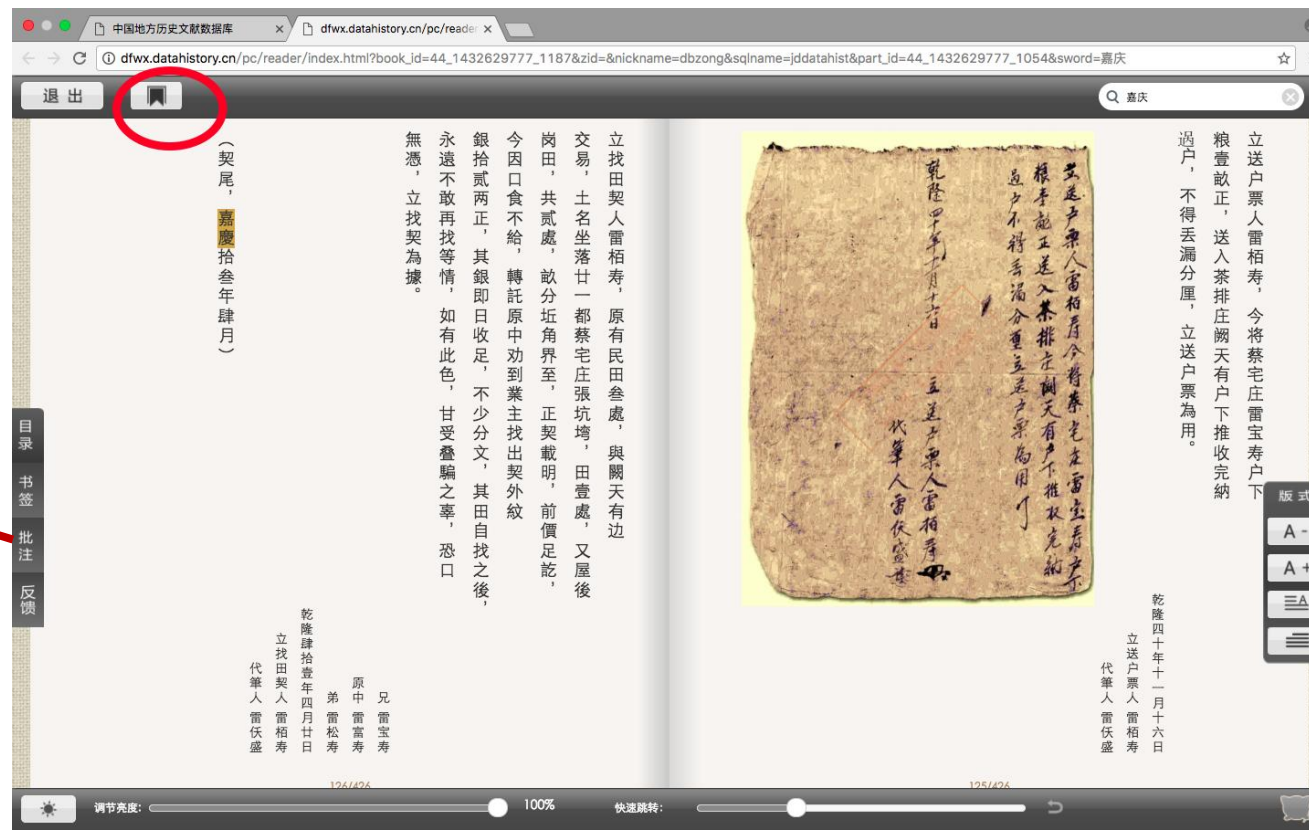 中国地方历史文献数据库
dfwx.datahistory.cn/pc/reade
dfwx.datahistory.cn/pc/reader/index.html?book_id=44_1432629777_1187&zid=&nickname=dbzong&sqlname=jddatahist&part_id=44_1432629777_1054&sword=嘉庆
退出
嘉庆
立送户票人雷栢寿，今将蔡宅庄雷宝寿户下
粮壹畝正，送入茶排庄阙天有户下推收完納
過户，不得丢漏分厘，立送户票為用。
乾隆四十年十一月十六日
立送户票人 雷栢寿
代筆人 雷仸盛
立送户票人雷栢寿今将蔡宅庄雷宝寿户下
粮壹畝正送入茶排庄阙天有户下推收完納
過户不得丢漏分厘立送户票為用
乾隆四十年十一月十六日
立送户票人雷栢寿
代筆人雷仸盛
125/426
立找田契人雷栢寿，原有民田叁處，與闕天有边
交易，土名坐落廿一都蔡宅庄張坑塆，田壹處，又屋後
岗田，共貳處，畝分坵角界至，正契載明，前價足訖，
今因口食不給，轉託原中劝到業主找出契外紋
銀拾貳两正，其銀即日收足，不少分文，其田自找之後，
永遠不敢再找等情，如有此色，甘受叠騙之辜，恐口
無憑，立找契為據。
兄 雷宝寿
原中 雷富寿
弟 雷松寿
乾隆肆拾壹年四月廿日
立找田契人 雷栢寿
代筆人 雷仸盛
（契尾，嘉慶拾叁年肆月）
126/426
目录
书签
批注
反馈
版式
A -
A +
调节亮度:
100%
快速跳转: